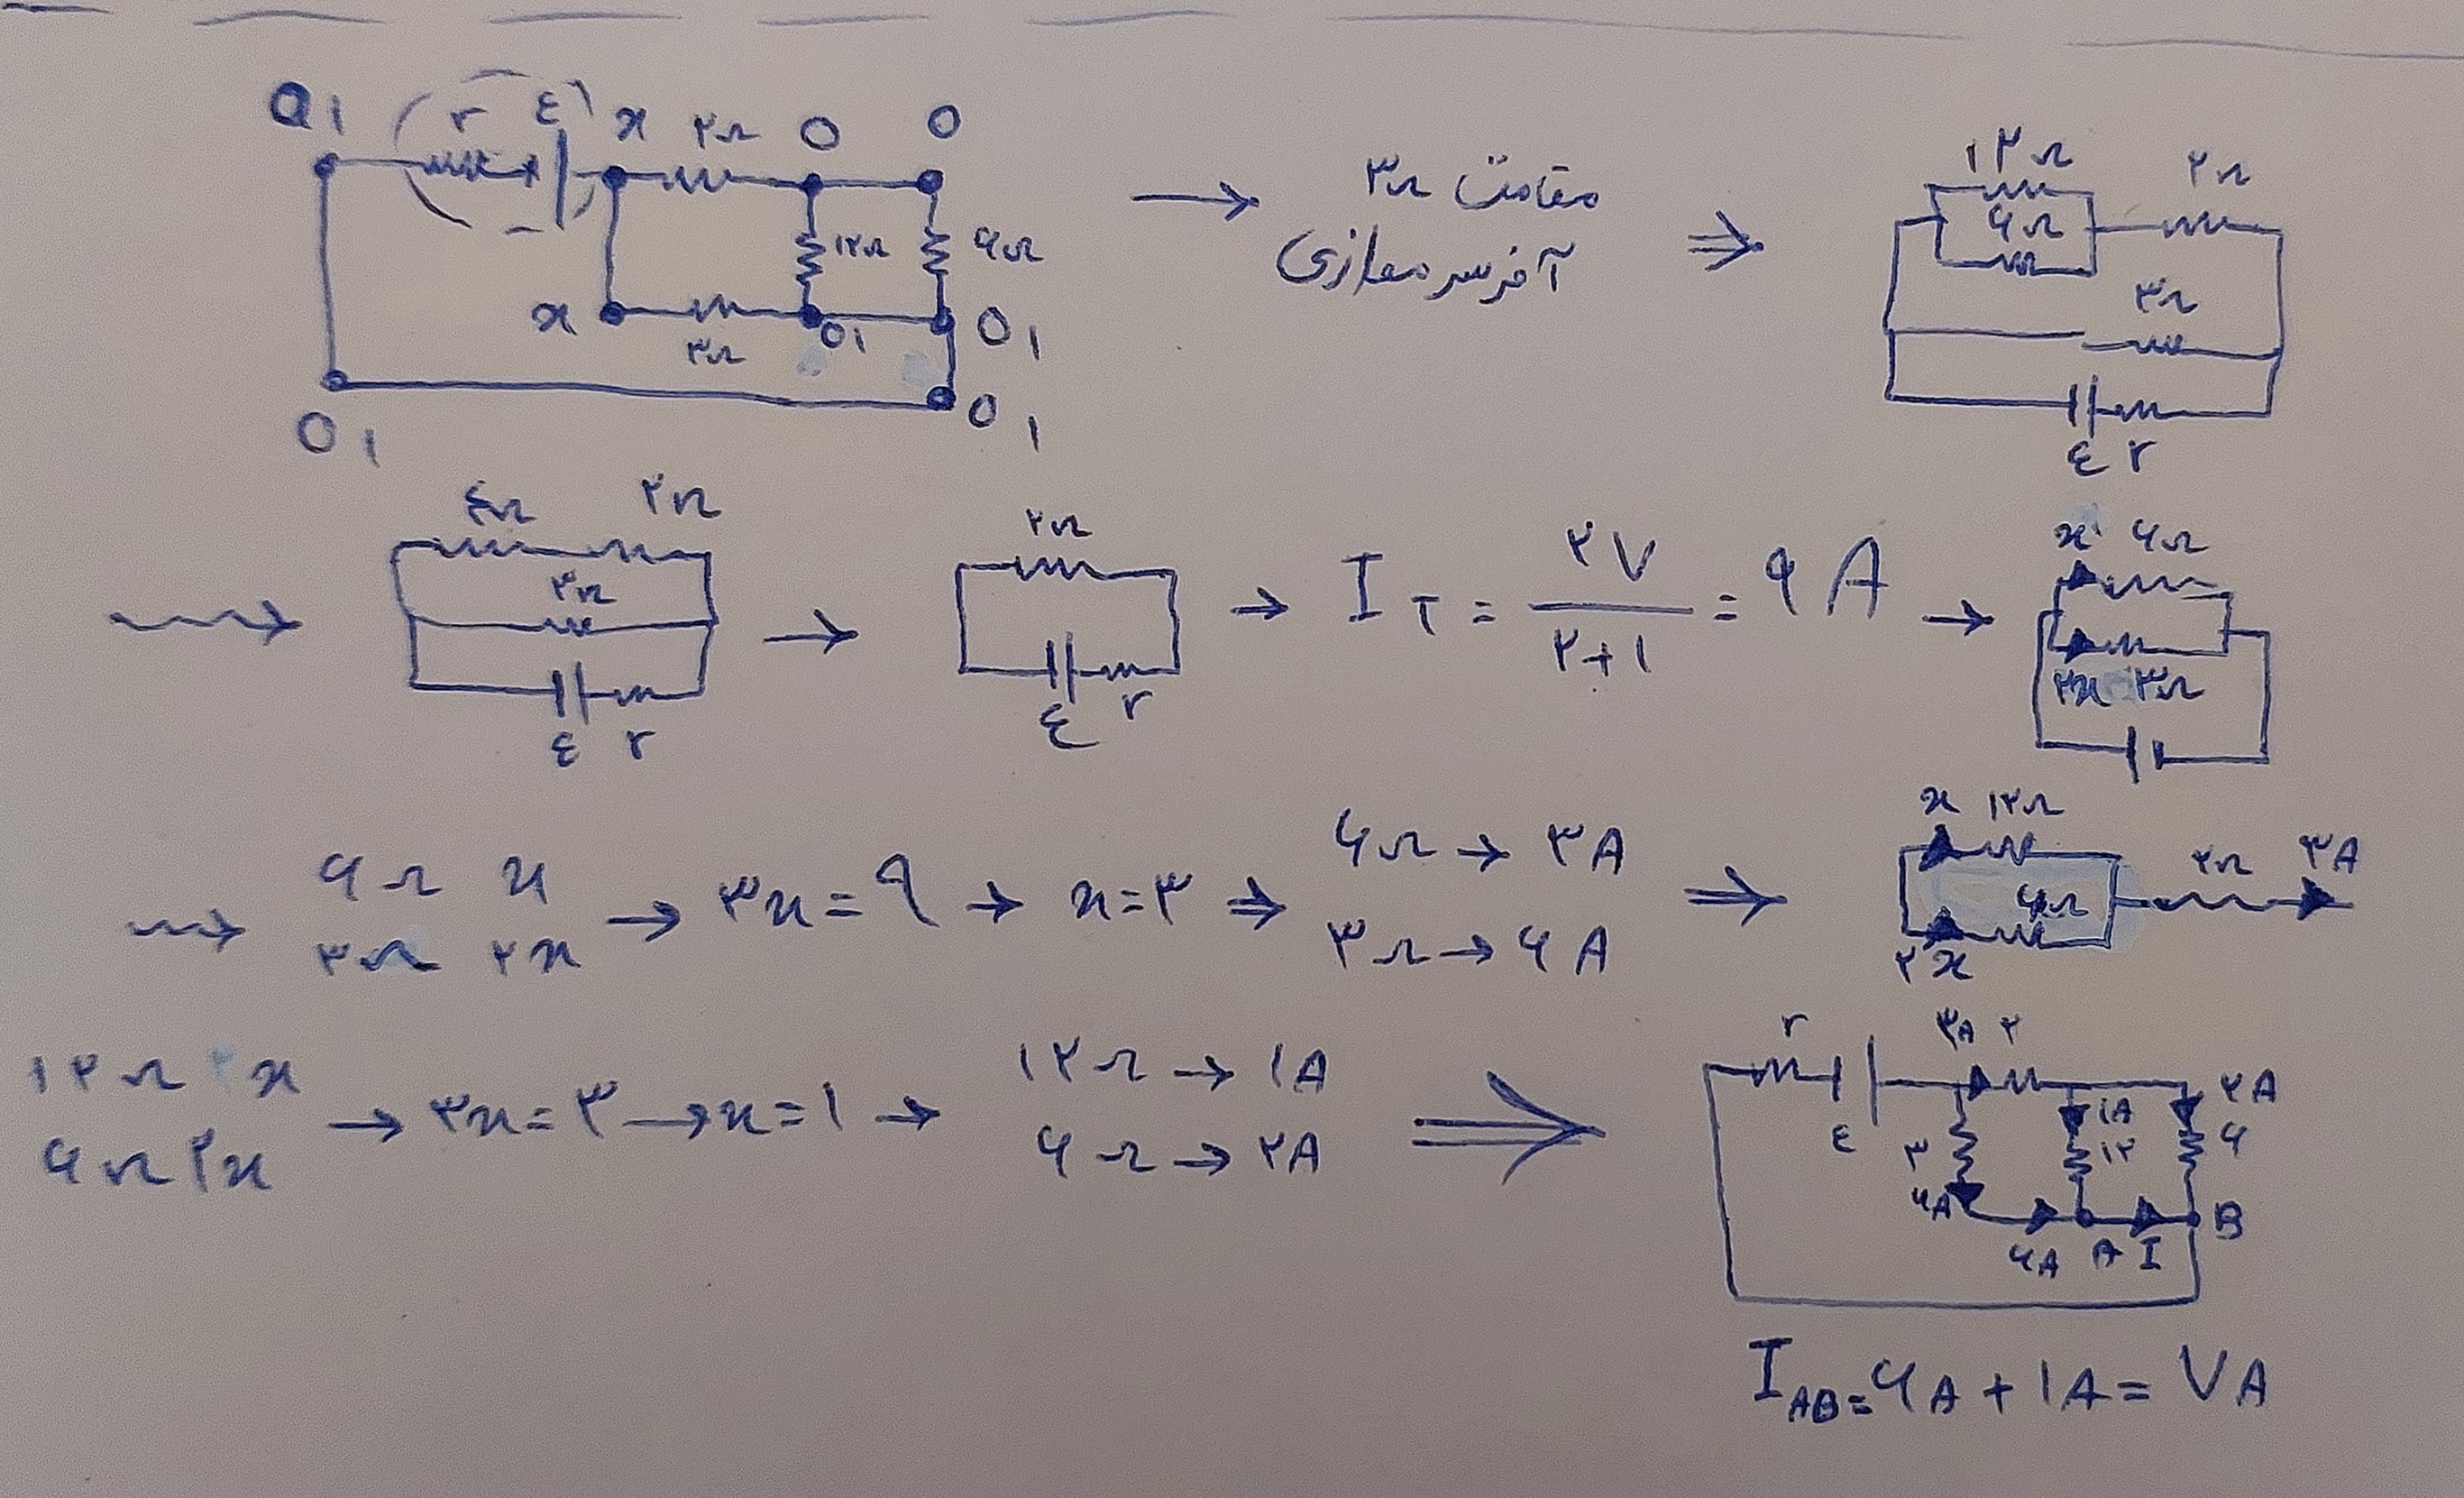 O₁ r ε x ۲Ω O O
۱۲Ω ۶Ω
x ۳Ω O₁ O₁
O₁ O₁
→ مقاومت ۳Ω
آخر سر موازی
⇒ ۱۲Ω ۲Ω
۶Ω
۳Ω
ε r
⇝ ۴Ω ۲Ω
۳Ω
ε r
→ ۲Ω
ε r
→ I_T = ۲۷ / ۲+۱ = ۹ A →
x ۶Ω
۲x ۳Ω
⇝ ۶Ω x
۳Ω ۲x
→ ۳x = ۹ → x = ۳ ⇒
۶Ω → ۳A
۳Ω → ۶A
⇒ x ۱۲Ω
۶Ω ۲Ω ۳A
۲x
۱۲Ω x
۶Ω ۲x
→ ۳x = ۳ → x = ۱ →
۱۲Ω → ۱A
۶Ω → ۲A
⇒ r ε ۳A ۲
۱A ۲A
۳ ۱۲ ۶
۶A ۶A A I B
I_AB = ۶A + ۱A = ۷A